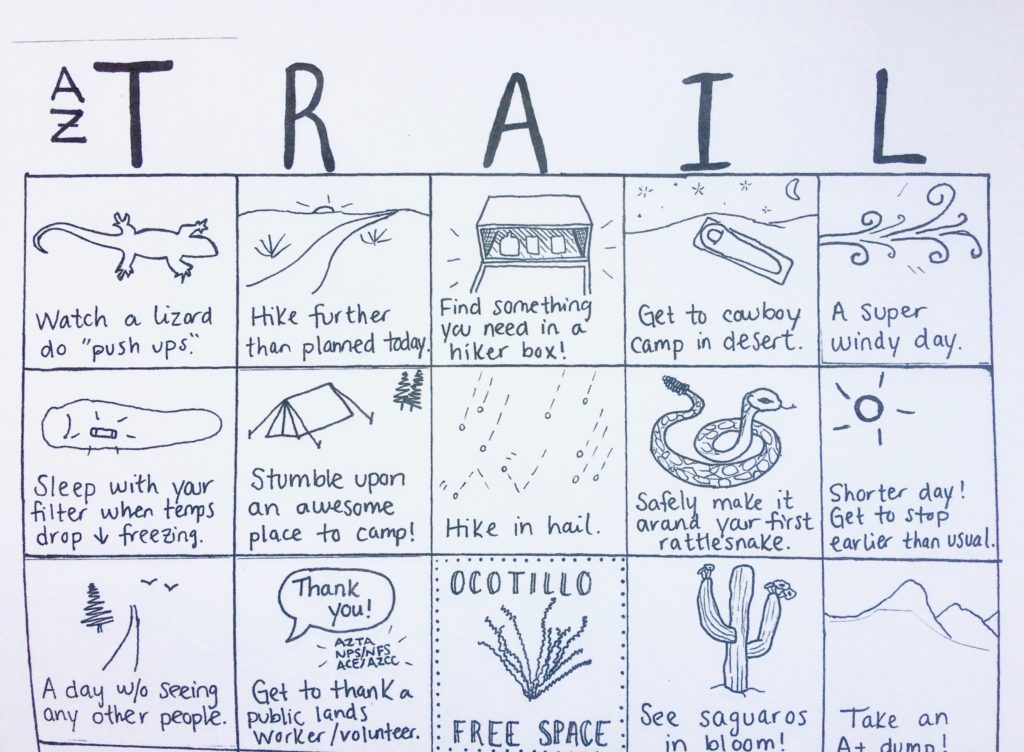 AZ TRAIL
Watch a lizard
do "push ups."
Hike further
than planned today.
Find something
you need in a
hiker box!
Get to cowboy
camp in desert.
A super
windy day.
Sleep with your
filter when temps
drop ↓ freezing.
Stumble upon
an awesome
place to camp!
Hike in hail.
Safely make it
around your first
rattlesnake.
Shorter day!
Get to stop
earlier than usual.
A day w/o seeing
any other people.
Thank
you!
AZTA
NPS/NFS
ACE/AZCC
Get to thank a
public lands
worker/volunteer.
OCOTILLO
FREE SPACE
See saguaros
in bloom!
Take an
A+ dump!